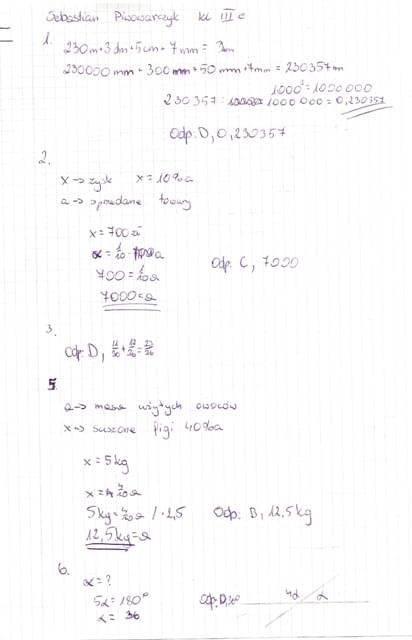 Sebastian Piwowarczyk kl III c
1.
230m+3dm+5cm+7mm=?km
230000mm+300mm+50mm+7mm=230357m
1000²=1000000
230357:1000000=0,230357
Odp. D, 0,230357
2.
x→zysk x=10%a
a→sprzedane towary
x=700zł
x=1/10·a
700=1/10a
7000=a
Odp. C, 7000
3.
Odp. D,
5.
a→masa użytych owoców
x→suszone figi 40%a
x=5kg
x=4/10a
5kg=4/10a /·2,5
12,5kg=a
Odp. B, 12,5kg
6.
α=?
5α=180°
α=36
Odp. D, 36°
4α α